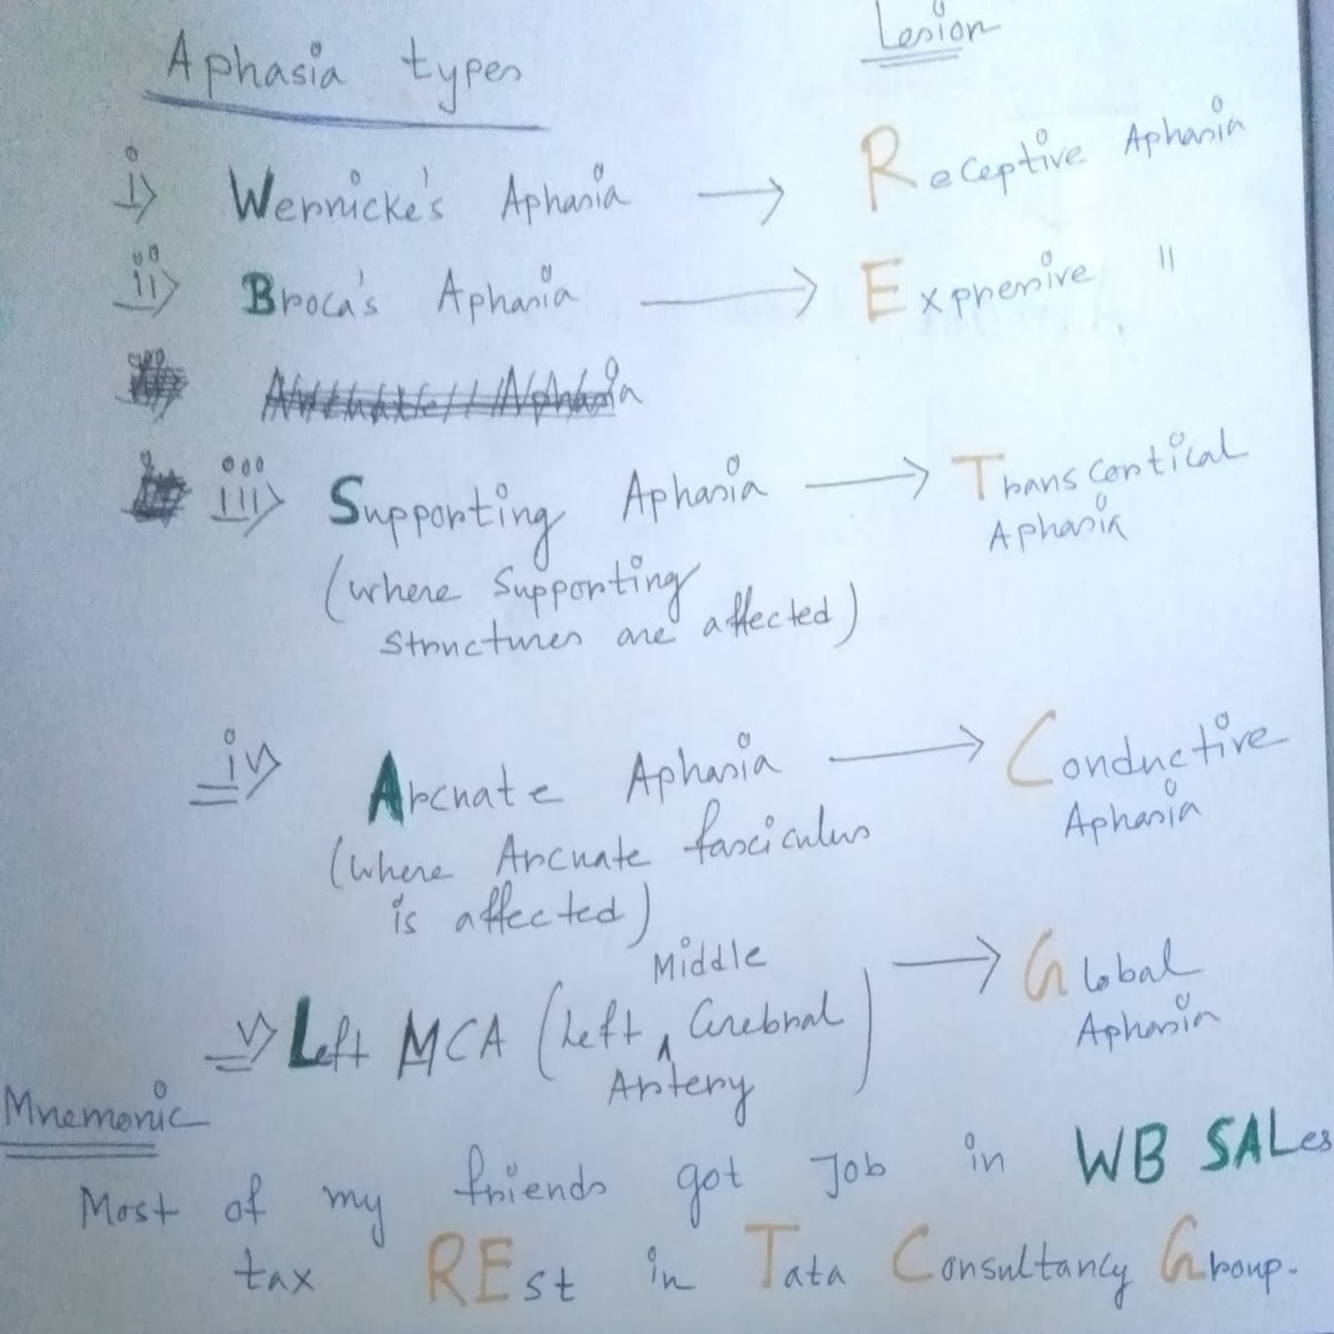 Aphasia types Lesion
i> Wernicke's Aphasia → Receptive Aphasia
ii> Broca's Aphasia → Expressive "
iii> Supporting Aphasia → Transcortical
Aphasia
(where supporting
structures are affected)
iv> Arcuate Aphasia → Conductive
Aphasia
(where Arcuate fasciculus
is affected)
v> Left MCA (Left Middle Cerebral → Global
Artery) Aphasia
Mnemonic
Most of my friends got Job in WB SALes
tax REst in Tata Consultancy Group.